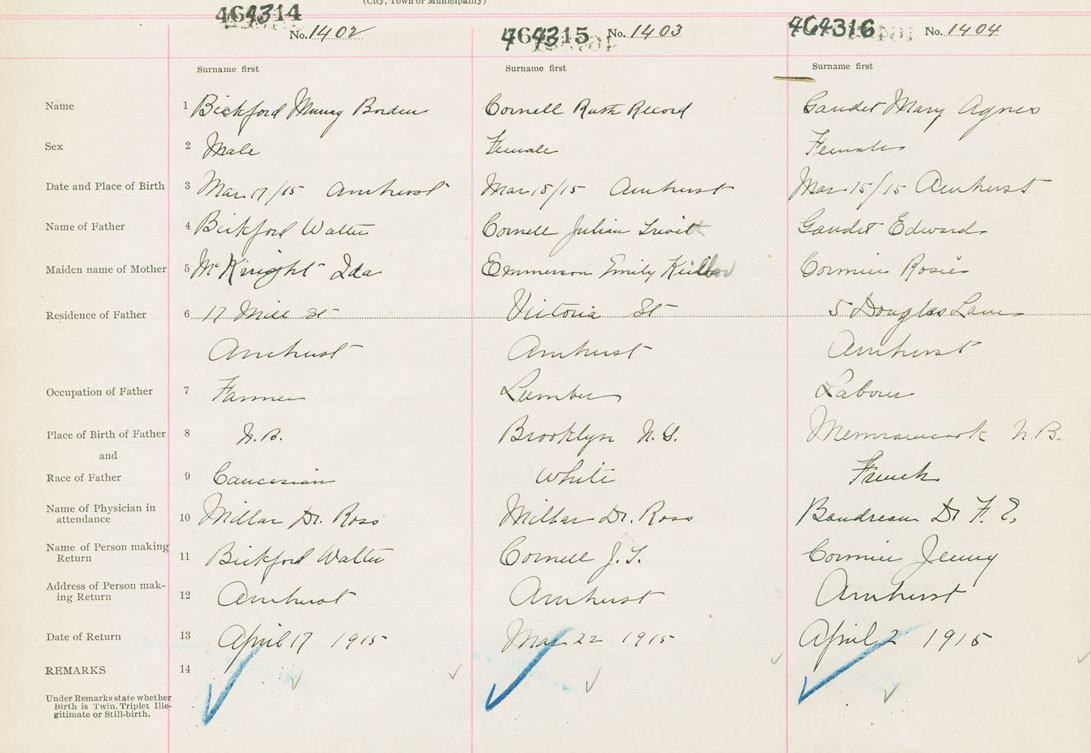 (City, Town or Municipality)
464314 464315 464316
No. 1402 No. 1403 No. 1404
Surname first Surname first Surname first
Name 1 Bickford Murray Borden Cornell Ruth Record Gaudet Mary Agnes
Sex 2 Male Female Female
Date and Place of Birth 3 Mar 17/15 Amherst Mar 15/15 Amherst Mar 15/15 Amherst
Name of Father 4 Bickford Walter Cornell Julian Gaudet Edward
Maiden name of Mother 5 McKnight Ida Emmerson Emily Cormier Rosie
Residence of Father 6 17 Mill St Victoria St 5 Douglas Lane
Amherst Amherst Amherst
Occupation of Father 7 Farmer Lumber Labourer
Place of Birth of Father 8 N.B. Brooklyn N.Y. Memramcook N.B.
and
Race of Father 9 Caucasian White French
Name of Physician in
attendance 10 Millar Dr. Ross Millar Dr. Ross Boudreau Dr F. E.
Name of Person making
Return 11 Bickford Walter Cornell J.T. Cormier Jenny
Address of Person mak-
ing Return 12 Amherst Amherst Amherst
Date of Return 13 April 17 1915 Mar 22 1915 April 2 1915
REMARKS 14
Under Remarks state whether
Birth is Twin, Triplet Ille-
gitimate or Still-birth.